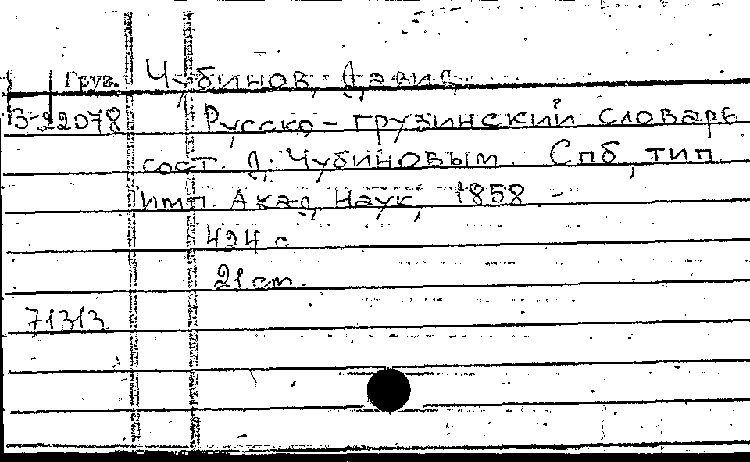 Груз. Чубинов, Давид
В-22078 Русско-грузинский словарь
сост. Д. Чубиновым. Спб, тип.
Имп. Акад. Наук, 1858. -
494 с
21 cm.
71313